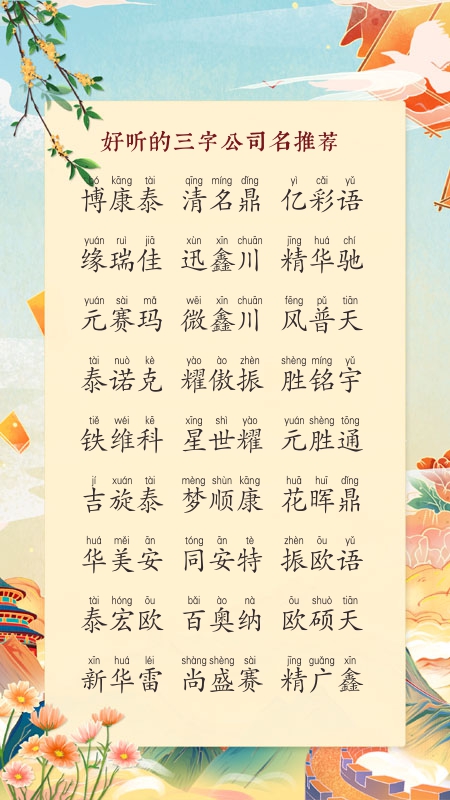 好听的三字公司名推荐
bó kāng tài qīng míng dǐng yì cǎi yǔ
博康泰 清名鼎 亿彩语
yuán ruì jiā xùn xīn chuān jīng huá chí
缘瑞佳 迅鑫川 精华驰
yuán sài mǎ wēi xīn chuān fēng pǔ tiān
元赛玛 微鑫川 风普天
tài nuò kè yào ào zhèn shèng míng yǔ
泰诺克 耀傲振 胜铭宇
tiě wéi kē xīng shì yào yuán shèng tōng
铁维科 星世耀 元胜通
jí xuán tài mèng shùn kāng huā huī dǐng
吉旋泰 梦顺康 花晖鼎
huá měi ān tóng ān tè zhèn ōu yǔ
华美安 同安特 振欧语
tài hóng ōu bǎi ào nà ōu shuò tiān
泰宏欧 百奥纳 欧硕天
xīn huá léi shàng shèng sài jīng guǎng xīn
新华雷 尚盛赛 精广鑫